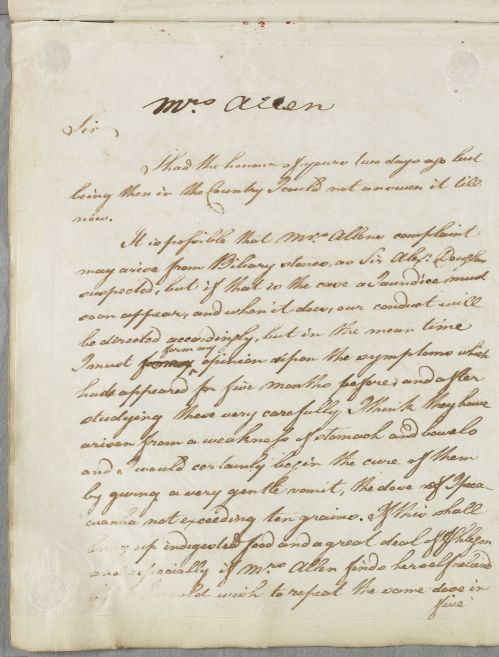 Mrs Allen
Sir
I had the honour of yours two days ago but
being then in the Country I could not answer it till
now.
It is possible that Mrs. Allens complaint
may arise from Biliary stones, as Sir Alexr. Douglas
suspected, but if that is the case a Jaundice must
soon appear, and when it does, our conduct will
be directed accordingly, but in the mean time
I must form my opinion upon the symptoms which
had appeared for five months before, and after
studying these very carefully, I think they have
arisen from a weakness of stomach and bowels
and I would certainly begin the cure of them
by giving a very gentle vomit, the dose of Ipeca
cuanha not exceeding ten grains. If this shall
bring up indigested food and a great deal of Phlegm
and especially if Mrs Allen finds herself relieved
I would wish to repeat the same dose in
five